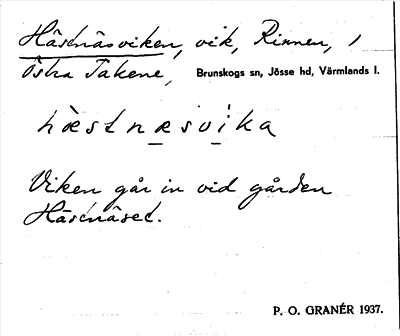 Hästnäsviken, vik, Rinnen, 1
Östra Takene, Brunskogs sn, Jösse hd, Värmlands l.
hæstnæsvika
Viken går in vid gården
Hästnäset.
P. O. GRANÉR 1937.